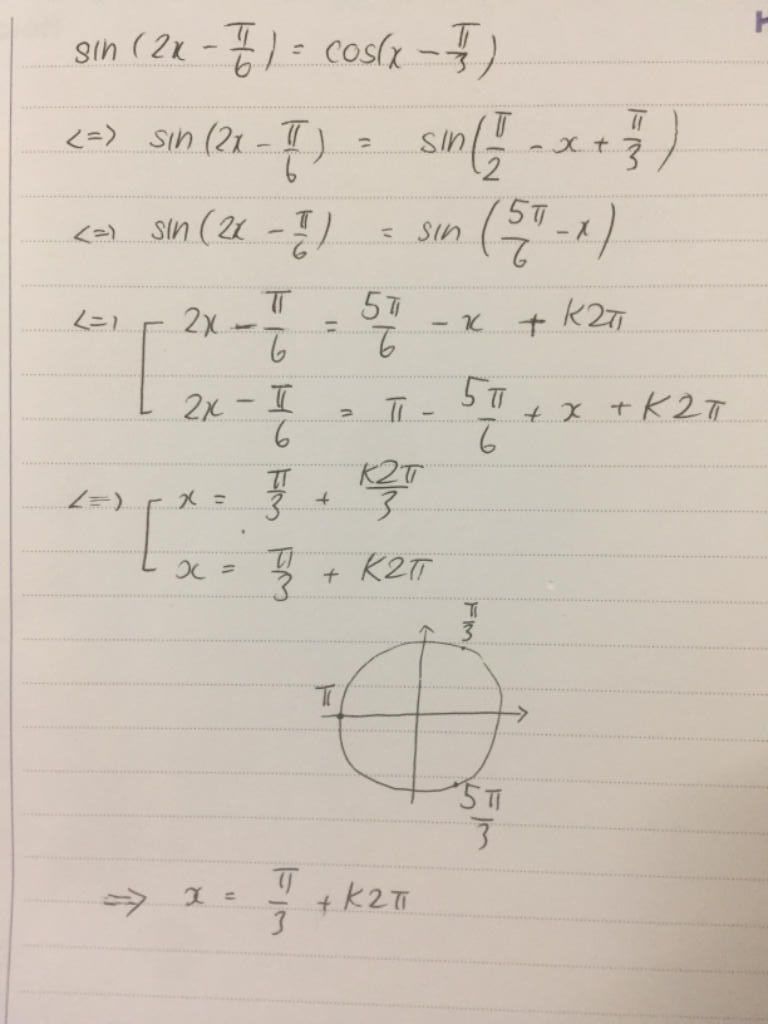 sin(2x - π/6) = cos(x - π/3)
<=> sin(2x - π/6) = sin(π/2 - x + π/3)
<=> sin(2x - π/6) = sin(5π/6 - x)
<=> [ 2x - π/6 = 5π/6 - x + K2π
2x - π/6 = π - 5π/6 + x + K2π
<=> [ x = π/3 + K2π/3
x = π/3 + K2π
π/3
π
5π/3
=> x = π/3 + K2π